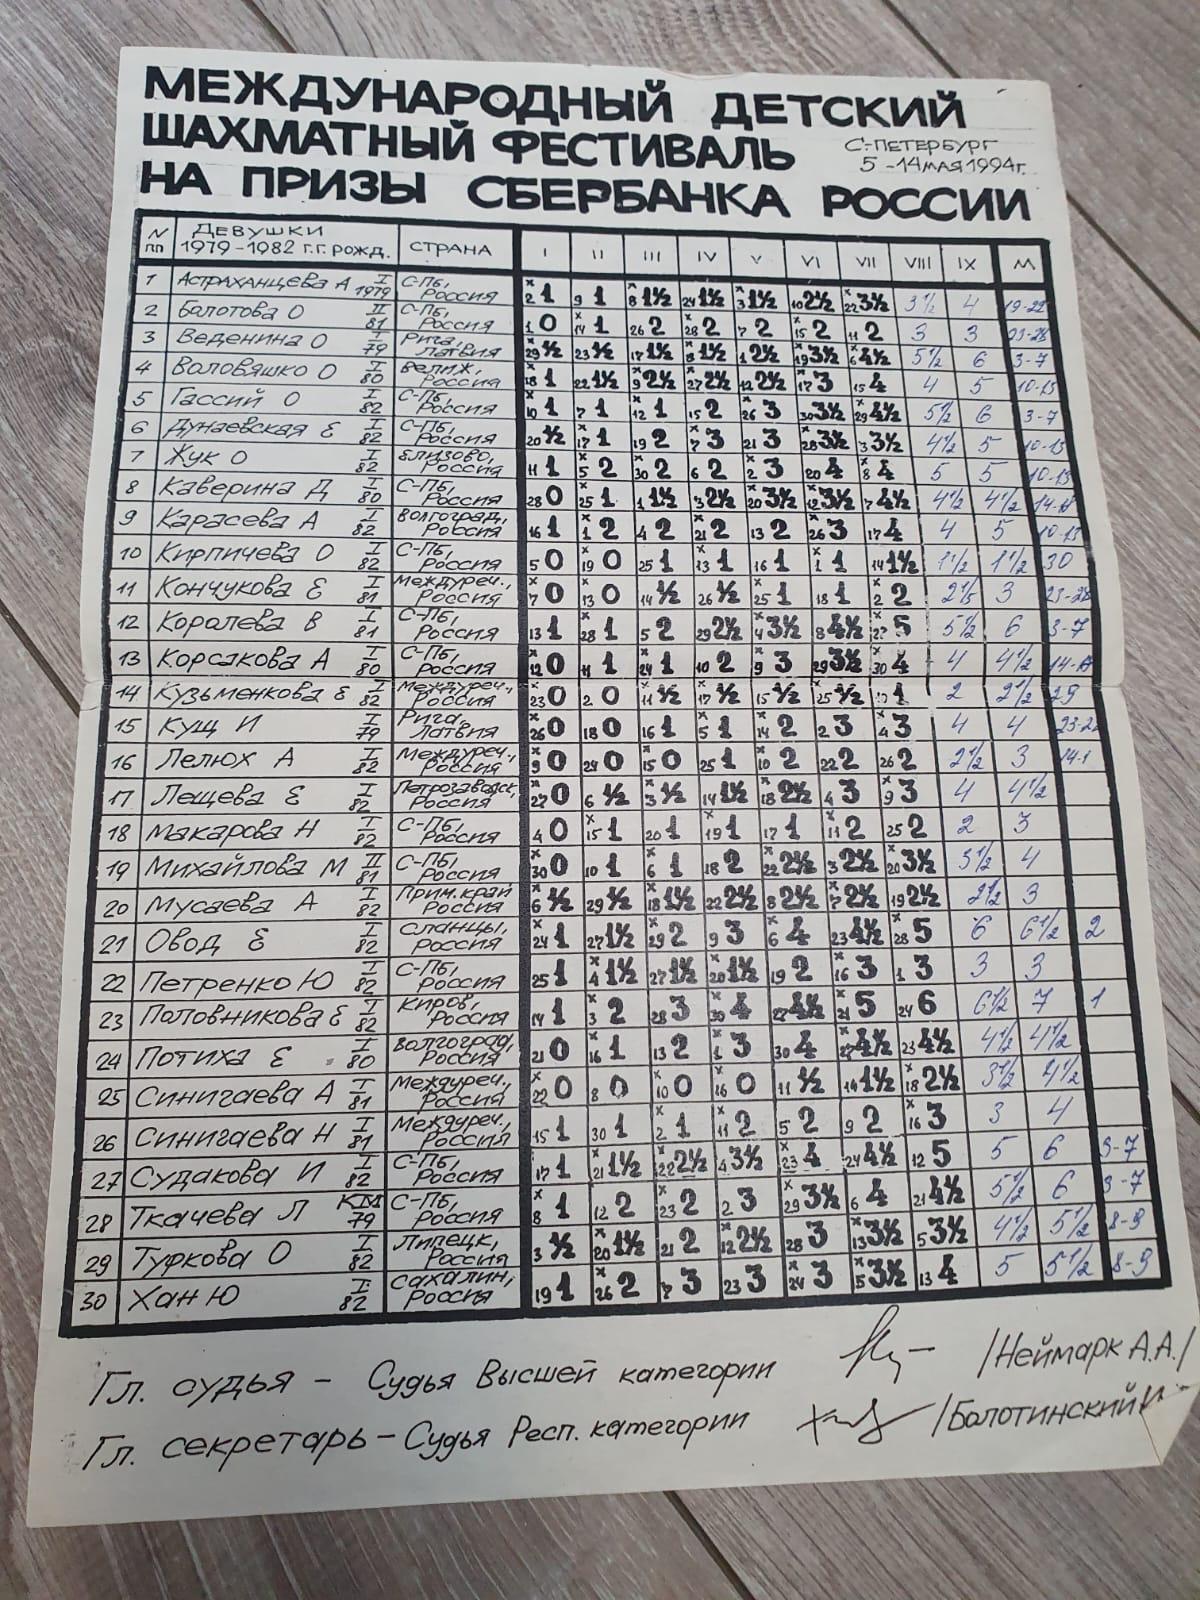 МЕЖДУНАРОДНЫЙ ДЕТСКИЙ
ШАХМАТНЫЙ ФЕСТИВАЛЬ
С-ПЕТЕРБУРГ
5-14 МАЯ 1994г.
НА ПРИЗЫ СБЕРБАНКА РОССИИ
N пп ДЕВУШКИ 1979-1982 г.г. рожд. СТРАНА I II III IV V VI VII VIII IX М
1 Астраханцева А I 1979 С-Пб, Россия x2 1 9 1 x8 1½ 24 1½ x3 1½ 10 2½ x22 3½ 3½ 4 19-22
2 Болотова О II 81 С-Пб, Россия 1 0 x14 1 26 2 x28 2 7 2 x15 2 11 2 3 3
3 Веденина О I 79 Рига, Латвия x29 ½ 23 ½ x17 1½ x8 1½ 1 2½ x19 3½ x6 4½ 5½ 6 3-7
4 Воловяшко О I 80 Велиж, Россия x18 1 22 1½ x9 2½ x27 2½ 12 2½ x17 3 15 4 4 5 10-13
5 Гассий О I 82 С-Пб, Россия x10 1 7 1 x12 1 15 2 x26 3 30 3½ x29 4½ 5½ 6 3-7
6 Дунаевская Е I 82 С-Пб, Россия 20 ½ x17 1 19 2 x7 3 21 3 x28 3½ 3 3½ 4½ 5 10-13
7 Жук О I 82 Елизово, Россия 11 1 x5 2 x30 2 6 2 x2 3 20 4 x8 4 5 5 10-13
8 Каверина Д I 80 С-Пб, Россия 28 0 x25 1 1 1½ x3 2½ x20 3½ x12 3½ 7 4½ 4½ 4½
9 Карасева А I 82 Волгоград, Россия 16 1 x1 2 4 2 x21 2 13 2 x26 3 17 4 4 5 10-13
10 Кирпичева О I 82 С-Пб, Россия 5 0 x19 0 25 1 x13 1 16 1 x1 1 14 1½ 1½ 1½ 30
11 Кончукова Е I 81 Междуреч., Россия x7 0 x13 0 14 ½ x26 ½ x25 1 18 1 x2 2 3
12 Королева В I 81 С-Пб, Россия 13 1 x28 1 5 2 29 2½ x4 3½ 8 4½ 5 5½ 6 3-7
13 Корсакова А I 80 С-Пб, Россия x12 0 11 1 x24 1 10 2 x9 3 29 3½ x30 4 4 4½
14 Кузьменкова Е I 82 Междуреч., Россия x23 0 2 0 x11 ½ x17 ½ 15 ½ x25 ½ 1 2 2½ 29
15 Кущ И I 79 Рига, Латвия x26 0 18 0 16 1 x5 1 x14 2 2 3 x4 3 4 4
16 Лелюх А I 82 Междуреч., Россия x9 0 24 0 x15 0 25 1 x10 2 22 2 26 2 2½ 3
17 Лещева Е I 82 Петрозаводск, Россия x27 0 6 ½ x3 ½ 14 1½ x18 2½ 4 3 x9 3 4 4½
18 Макарова Н I 82 С-Пб, Россия 4 0 x15 1 20 1 x19 1 17 1 x11 2 25 2 2 3
19 Михайлова М II 81 С-Пб, Россия x30 0 10 1 x6 1 18 2 x22 2½ 3 2½ x20 3½ 3½ 4
20 Мусаева А I 82 Прим.край Россия x6 ½ 29 ½ x18 1½ 22 2½ 8 2½ x7 2½ 19 2½ 2½ 3
21 Овод Е I 82 Сланцы, Россия x24 1 27 1½ x29 2 9 3 x6 4 23 4½ x28 5 6 6½ 2
22 Петренко Ю I 82 С-Пб, Россия 25 1 x4 1½ 27 1½ x20 1½ 19 2 x16 3 1 3 3 3
23 Половникова Е I 82 Киров, Россия 14 1 x3 2 28 3 x30 4 27 4½ x21 5 24 6 6½ 7 1
24 Потиха Е I 80 Волгоград, Россия 21 0 x16 1 13 2 x1 3 30 4 x27 4½ 23 4½ 4½ 4½
25 Синигаева А I 81 Междуреч., Россия x22 0 8 0 x10 0 x16 0 11 ½ 14 1½ x18 2½ 3½
26 Синигаева Н I 81 Междуреч., Россия 15 1 30 1 x2 1 x11 2 5 2 9 2 x16 3 3 4
27 Судакова И I 82 С-Пб, Россия 17 1 x21 1½ x22 2½ 4 3½ x23 4 24 4½ 12 5 5 6 3-7
28 Ткачева Л КМ 79 С-Пб, Россия x8 1 12 2 x23 2 2 3 x29 3½ 6 4 21 4½ 5½ 6 3-7
29 Туркова О I 82 Липецк, Россия 3 ½ x20 1½ 21 2 x12 2½ 28 3 x13 3½ 5 3½ 4½ 5½ 8-9
30 Хан Ю I 82 Сахалин, Россия 19 1 x26 2 7 3 23 3 x24 3 x5 3½ 13 4 5 5½ 8-9
Гл. судья – Судья Высшей категории /Неймарк А.А./
Гл. секретарь – Судья Респ. категории /Болотинский